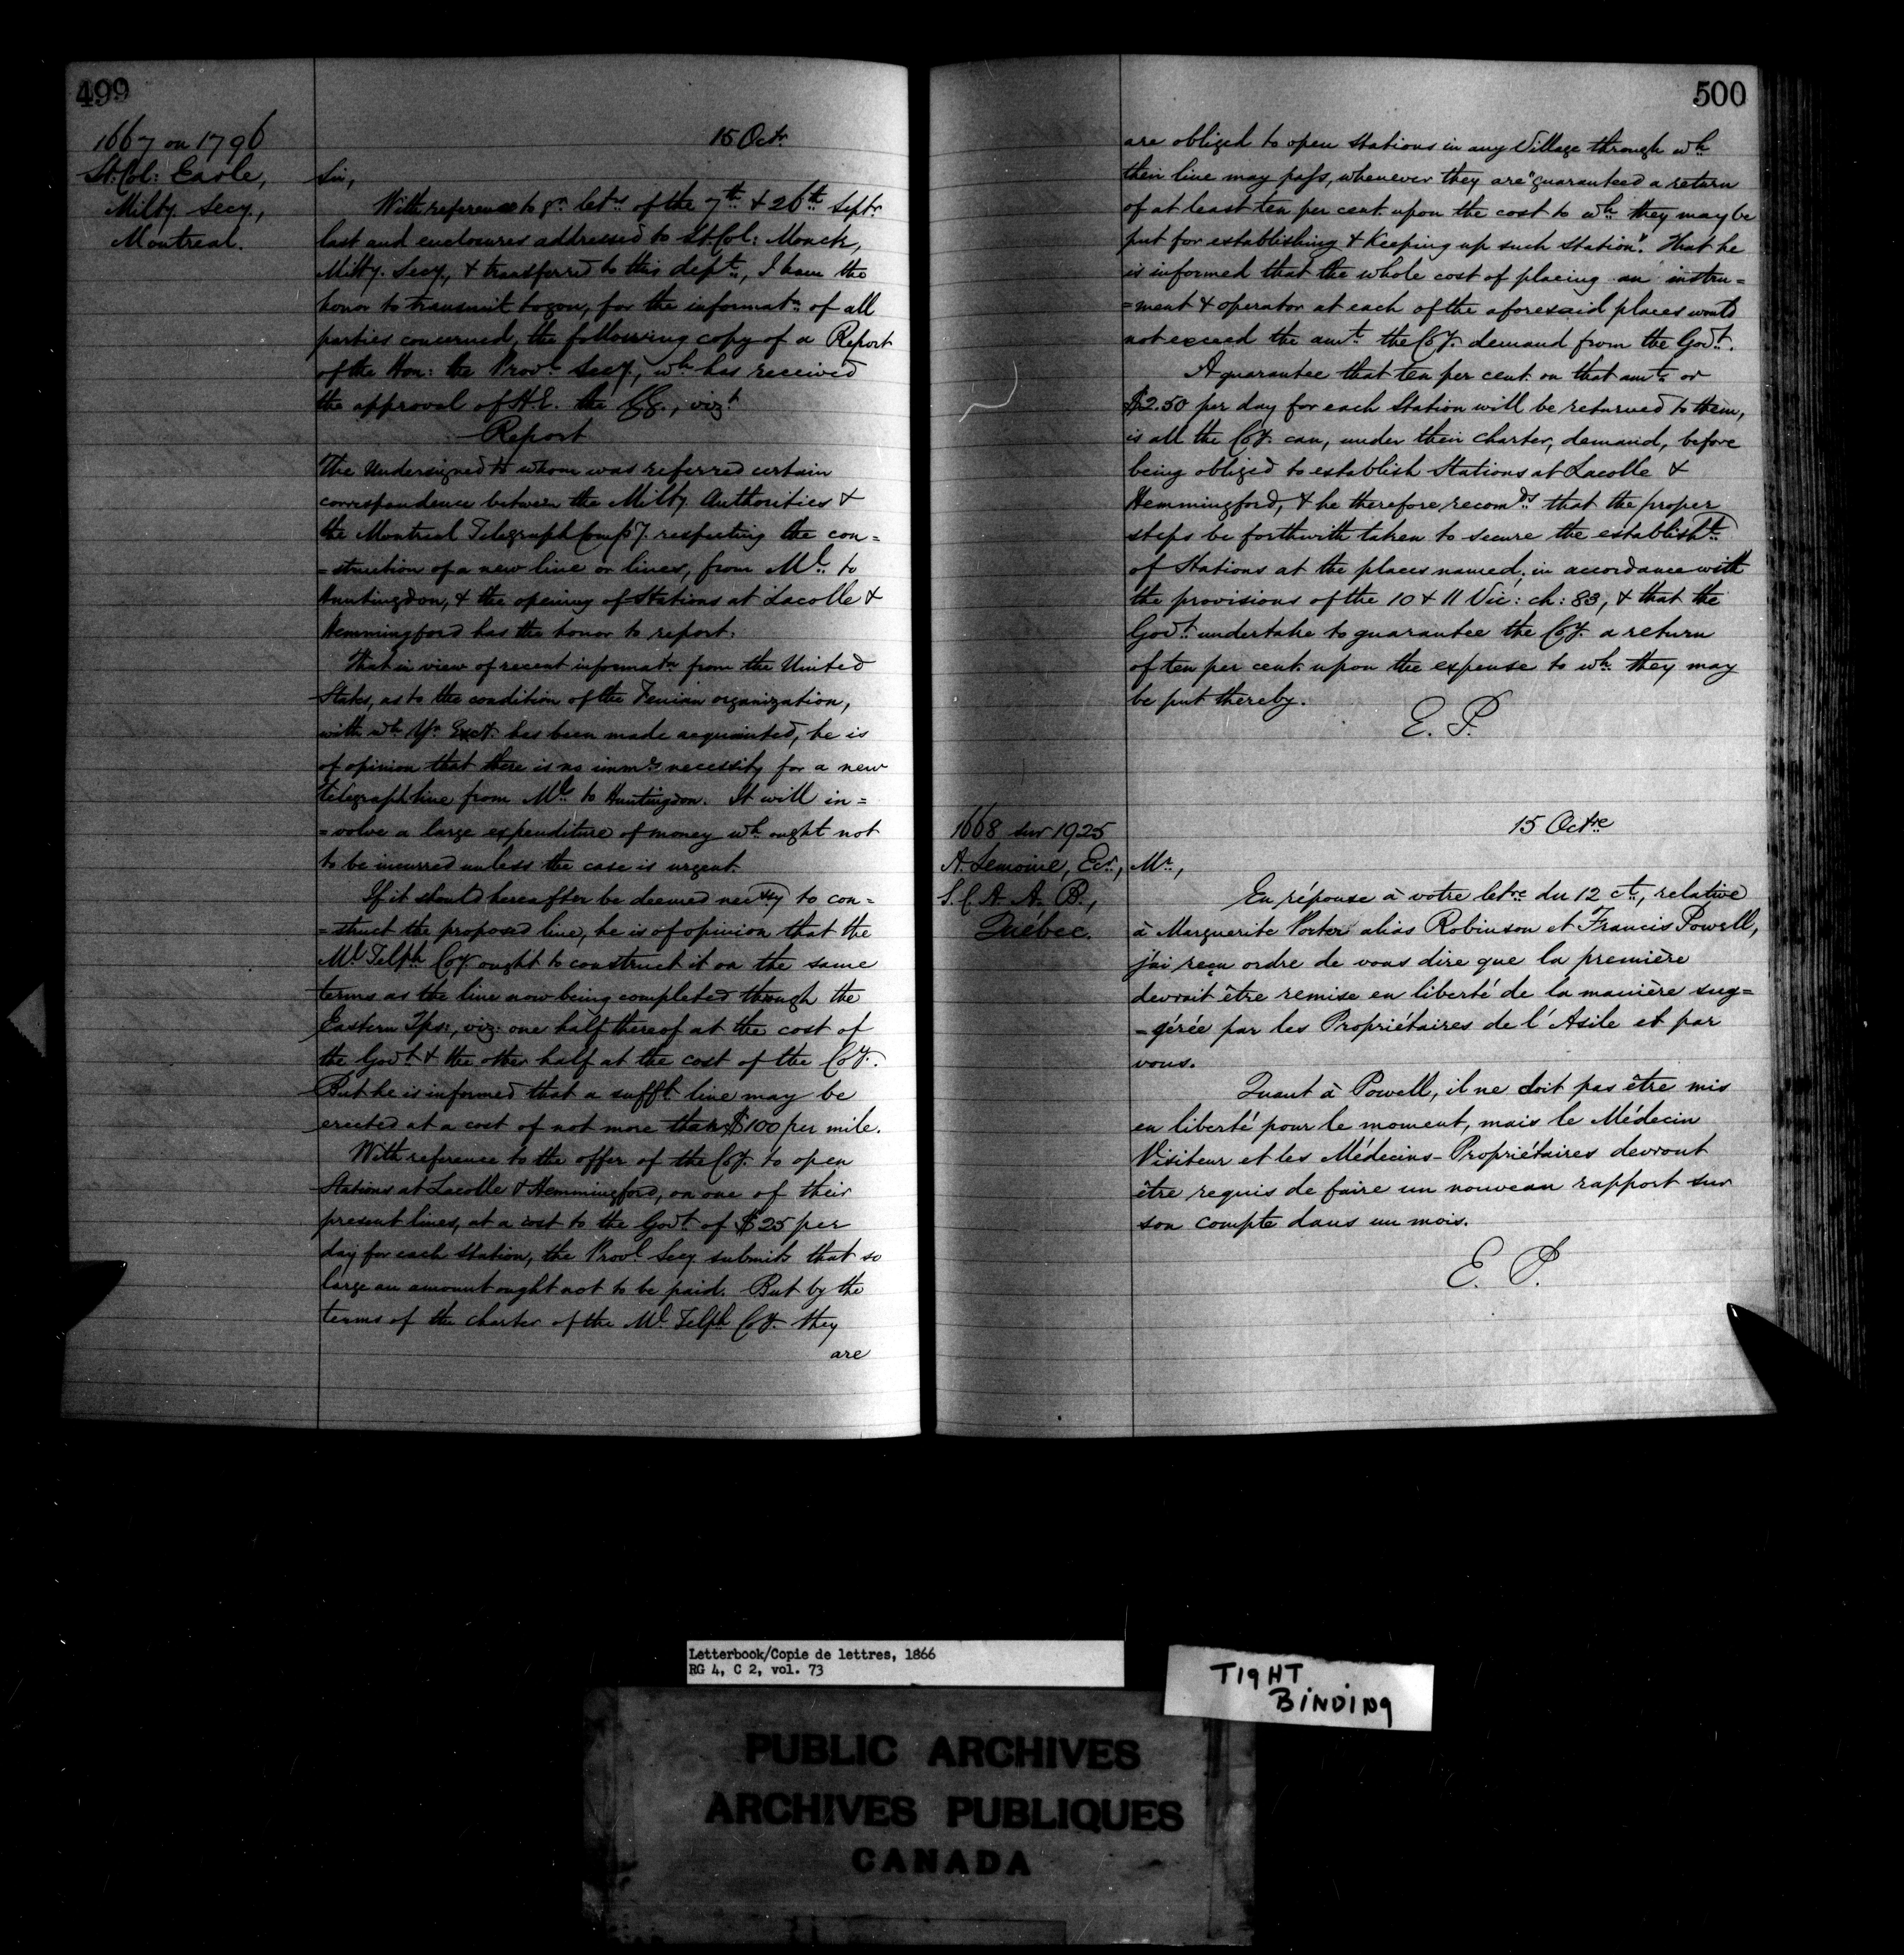 499
1667 on 1796
Lt. Col: Earle,
Milty. Secy,
Montreal.
15 Octr.
Sir,
With reference to yr. letrs. of the 7th. & 26th. Septr.
last and enclosures addressed to Lt. Col: Monck,
Milty. Secy, & transferred to this dept., I have the
honor to transmit to you, for the informatn. of all
parties concerned, the following copy of a Report
of the Hon: the Provl. Secy, wh. has received
the approval of H.E. the GG., vizt.
Report
The Undersigned to whom was referred certain
correspondence between the Milty. Authorities &
the Montreal Telegraph Compy. respecting the con=
=struction of a new line or lines, from Ml. to
Huntingdon, & the opening of Stations at Lacolle &
Hemmingford has the honor to report.
That in view of recent informatn. from the United
States, as to the condition of the Fenian organization,
with wh. Yr. Excy. has been made acquainted, he is
of opinion that there is no imme. necessity for a new
telegraph line from Ml. to Huntingdon. It will in=
=volve a large expenditure of money wh. ought not
to be incurred unless the case is urgent.
If it should hereafter be deemed necessy to con=
=struct the proposed line, he is of opinion that the
Ml. Telph. Coy. ought to construct it on the same
terms as the line now being completed through the
Eastern Tps:, viz: one half thereof at the cost of
the Govt. & the other half at the cost of the Coy.
But he is informed that a sufft. line may be
erected at a cost of not more than $100 per mile.
With reference to the offer of the Coy. to open
Stations at Lacolle & Hemmingford, on one of their
present lines, at a cost to the Govt. of $25 per
day for each Station, the Provl. Secy. submits that so
large an amount ought not to be paid. But by the
terms of the charter of the Ml. Telph. Coy. they
are
500
are obliged to open stations in any Village through wh.
their line may pass, whenever they are "guaranteed a return
of at least ten per cent. upon the cost to wh. they may be
put for establishing & keeping up such station". That he
is informed that the whole cost of placing an instru=
=ment & operator at each of the aforesaid places would
not exceed the amt. the Coy. demand from the Govt.
A guarantee that ten per cent. on that amt. or
$2.50 per day for each Station will be returned to them,
is all the Coy. can, under their charter, demand, before
being obliged to establish Stations at Lacolle &
Hemmingford, & he therefore recomds. that the proper
steps be forthwith taken to secure the establisht.
of Stations at the places named, in accordance with
the provisions of the 10 & 11 Vic: ch: 83, & that the
Govt. undertake to guarantee the Coy. a return
of ten per cent. upon the expense to wh. they may
be put thereby.
E. P.
1668 sur 1925
A. Lemoine, Ecr.,
S. C. A. A. B.,
Québec.
15 Octre.
Mr.,
En réponse à votre letre. du 12 ct., relative
à Marguerite Porter alias Robinson et Francis Powell,
j'ai reçu ordre de vous dire que la première
devrait être remise en liberté de la manière sug=
=gérée par les Propriétaires de l'Asile et par
vous.
Quant à Powell, il ne doit pas être mis
en liberté pour le moment, mais le Médecin
Visiteur et les Médecins-Propriétaires devront
être requis de faire un nouveau rapport sur
son compte dans un mois.
E. P.
Letterbook/Copie de lettres, 1866
RG 4, C 2, vol. 73
TIGHT
BINDING
PUBLIC ARCHIVES
ARCHIVES PUBLIQUES
CANADA